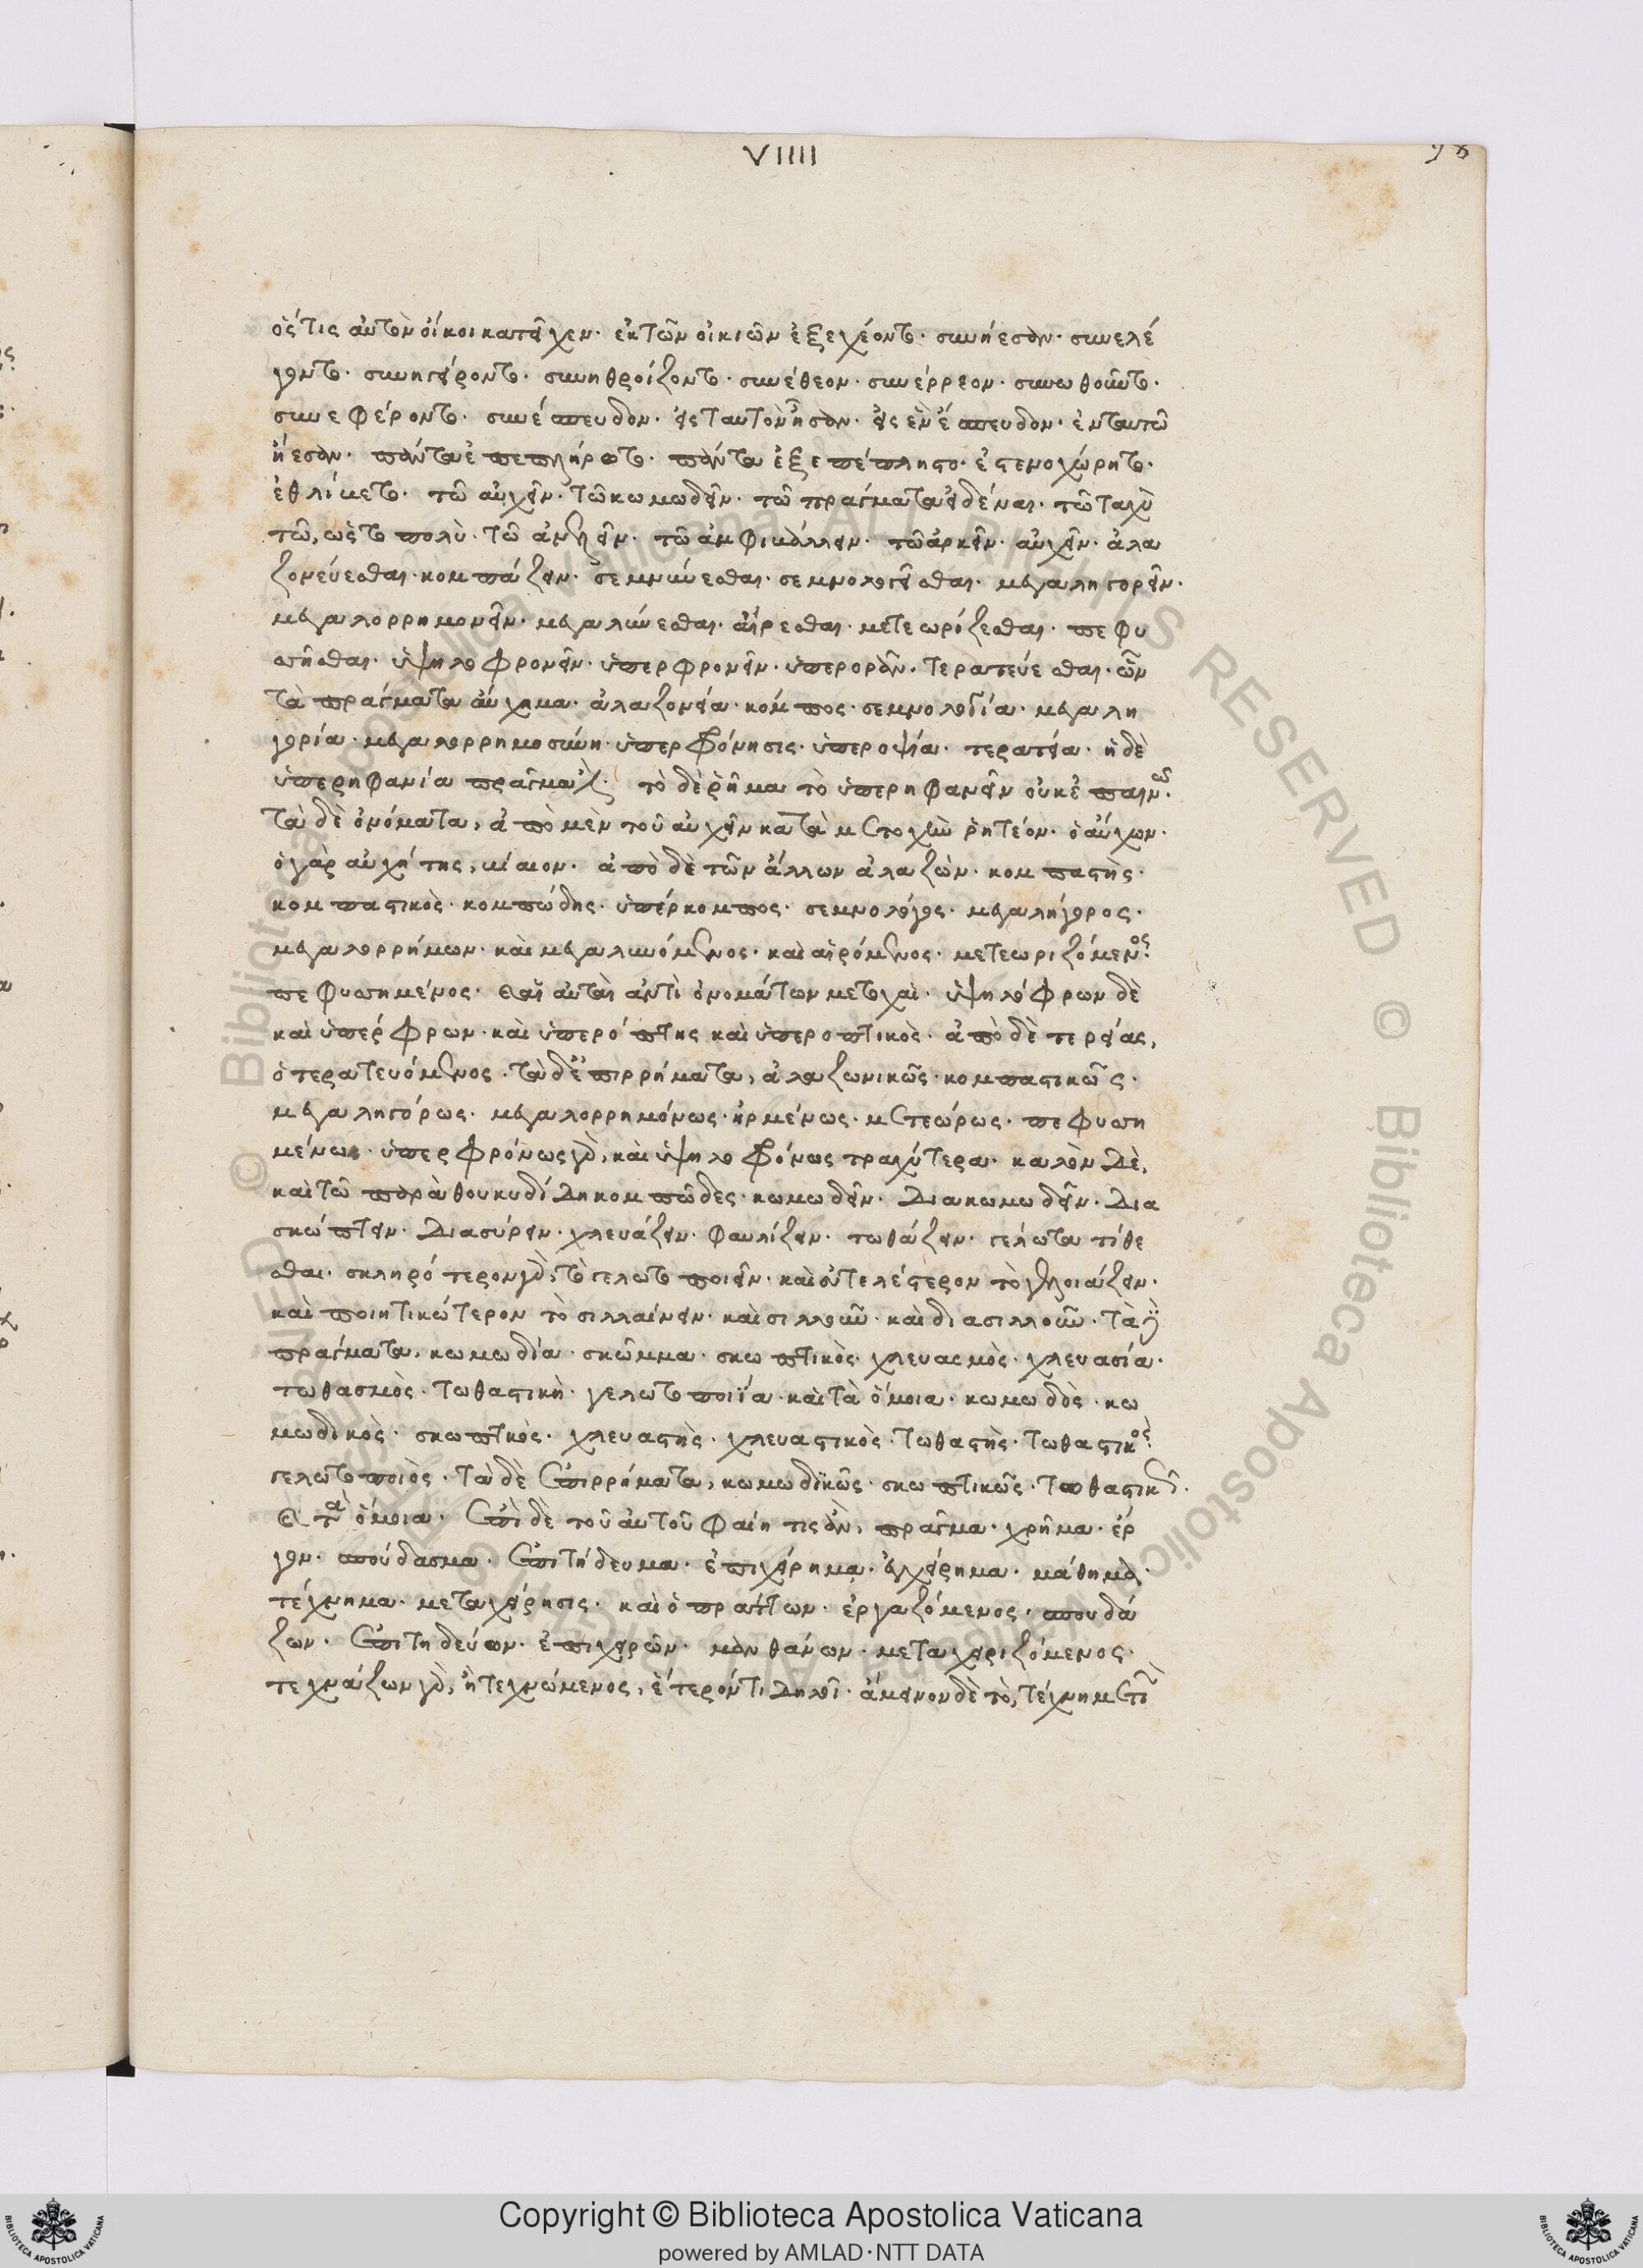 VIIII
ὅς τις αὐτὸν οἴκοι κατεῖχεν· ἐκ τῶν οἰκιῶν ἐξεχέοντο· συνῄεσαν· συνελέ
γοντο· συνηγείροντο· συνηθροίζοντο· συνέθεον· συνέρρεον· συνωθοῦντο·
συνεφέροντο· συνέσπευδον· εἰς ταυτὸν ᾖσαν· εἰς ἓν ἔσπευδον· ἐν ταυτῶ
ᾔεσαν· πάντα ἐπεπλήρωτο· πάντα ἐξεπέπληστο· ἐστενοχώρητο·
ἐθλίβετο· τῶ αὐχεῖν· τῶ κωμωδεῖν· τῶ πράγματα εἰδέναι· τῶ ταχὺ
τῶ, ὡς τὸ πολὺ· τῶ ἀντλεῖν· τῶ ἀμφιβάλλειν· τῶ ἀρκεῖν· αὐχεῖν· ἀλα
ζονεύεσθαι· κομπάζειν· σεμνύνεσθαι· σεμνολογεῖσθαι· μεγαληγορεῖν·
μεγαλορρημονεῖν· μεγαλύνεσθαι· αἴρεσθαι· μετεωρίζεσθαι· πεφυ
σῆσθαι· ὑψηλοφρονεῖν· ὑπερφρονεῖν· ὑπερορᾶν· τερατεύεσθαι· ὧν
τὰ πράγματα αὔχημα· ἀλαζονεία· κόμπος· σεμνολογία· μεγαλη
γορία· μεγαλορρημοσύνη· ὑπερφρόνησις· ὑπεροψία· τερατεία· ἡ δὲ
ὑπερηφανία πρᾶγμα τὸ δὲ ῥῆμα τὸ ὑπερηφανεῖν οὐκ ἐπαινῶ·
τὰ δὲ ὀνόματα, ἀπὸ μὲν τοῦ αὐχεῖν κατὰ μετοχὴν ῥητέον· ὁ αὐχῶν·
ὁ γὰρ αὐχήτης, βίαιον· ἀπὸ δὲ τῶν ἄλλων ἀλαζὼν· κομπαστὴς·
κομπαστικὸς· κομπώδης· ὑπέρκομπος· σεμνολόγος· μεγαλήγορος·
μεγαλορρήμων· καὶ μεγαλυνόμενος· καὶ αἰρόμενος· μετεωριζόμενος·
πεφυσημένος· καὶ αὗται ἀντὶ ὀνομάτων μετοχαὶ· ὑψηλόφρων δὲ
καὶ ὑπέρφρων· καὶ ὑπερόπτης καὶ ὑπεροπτικὸς· ἀπὸ δὲ τερείας,
ὁ τερατευόμενος· τὰ δὲ ἐπιρρήματα, ἀλαζονικῶς· κομπαστικῶς·
μεγαληγόρως· μεγαλορρημόνως· ἠρμένως· μετεώρως· πεφυση
μένως· ὑπερφρόνως γὰρ, καὶ ὑψηλοφρόνως τραχύτερα· καλὸν δὲ,
καὶ τῶ παρὰ θουκυδίδη κομπῶδες· κωμωδεῖν· διακωμωδεῖν· δια
σκώπτειν· διασύρειν· χλευάζειν· φαυλίζειν· τωθάζειν· γέλωτα τίθε
σθαι· σκληρότερον γὰρ, τὸ γελωτοποιεῖν· καὶ εὐτελέστερον τὸ γελοιάζειν·
καὶ ποιητικώτερον τὸ σιλλαίνειν· καὶ σιλλοῦν· καὶ διασιλλοῦν· τὰ δὲ
πράγματα, κωμωδία· σκῶμμα· σκωπτικὸς· χλευασμὸς· χλευασία·
τωθασμὸς· τωθαστικὴ· γελωτοποιΐα· καὶ τὰ ὅμοια· κωμωδὸς· κω
μωδικὸς· σκωπτικὸς· χλευαστὴς· χλευαστικὸς· τωθαστὴς· τωθαστικὸς·
γελωτοποιὸς· τὰ δὲ ἐπιρρήματα, κωμωδικῶς· σκωπτικῶς· τωθαστικῶς·
καὶ τὰ ὅμοια· ἐπὶ δὲ τοῦ αὐτοῦ φαίη τις ἂν, πρᾶγμα· χρῆμα· ἔρ
γον· σπούδασμα· ἐπιτήδευμα· ἐπιχείρημα· ἐγχείρημα· μάθημα·
τέχνημα· μεταχείρησις· καὶ ὁ πράττων· ἐργαζόμενος· σπουδά
ζων· ἐπιτηδεύων· ἐπιχειρῶν· μανθάνων· μεταχειριζόμενος·
τεχνάζων γὰρ, ἢ τεχνώμενος, ἕτερόν τι δηλοῖ· ἄμεινον δὲ τὸ, τέχνη μετι